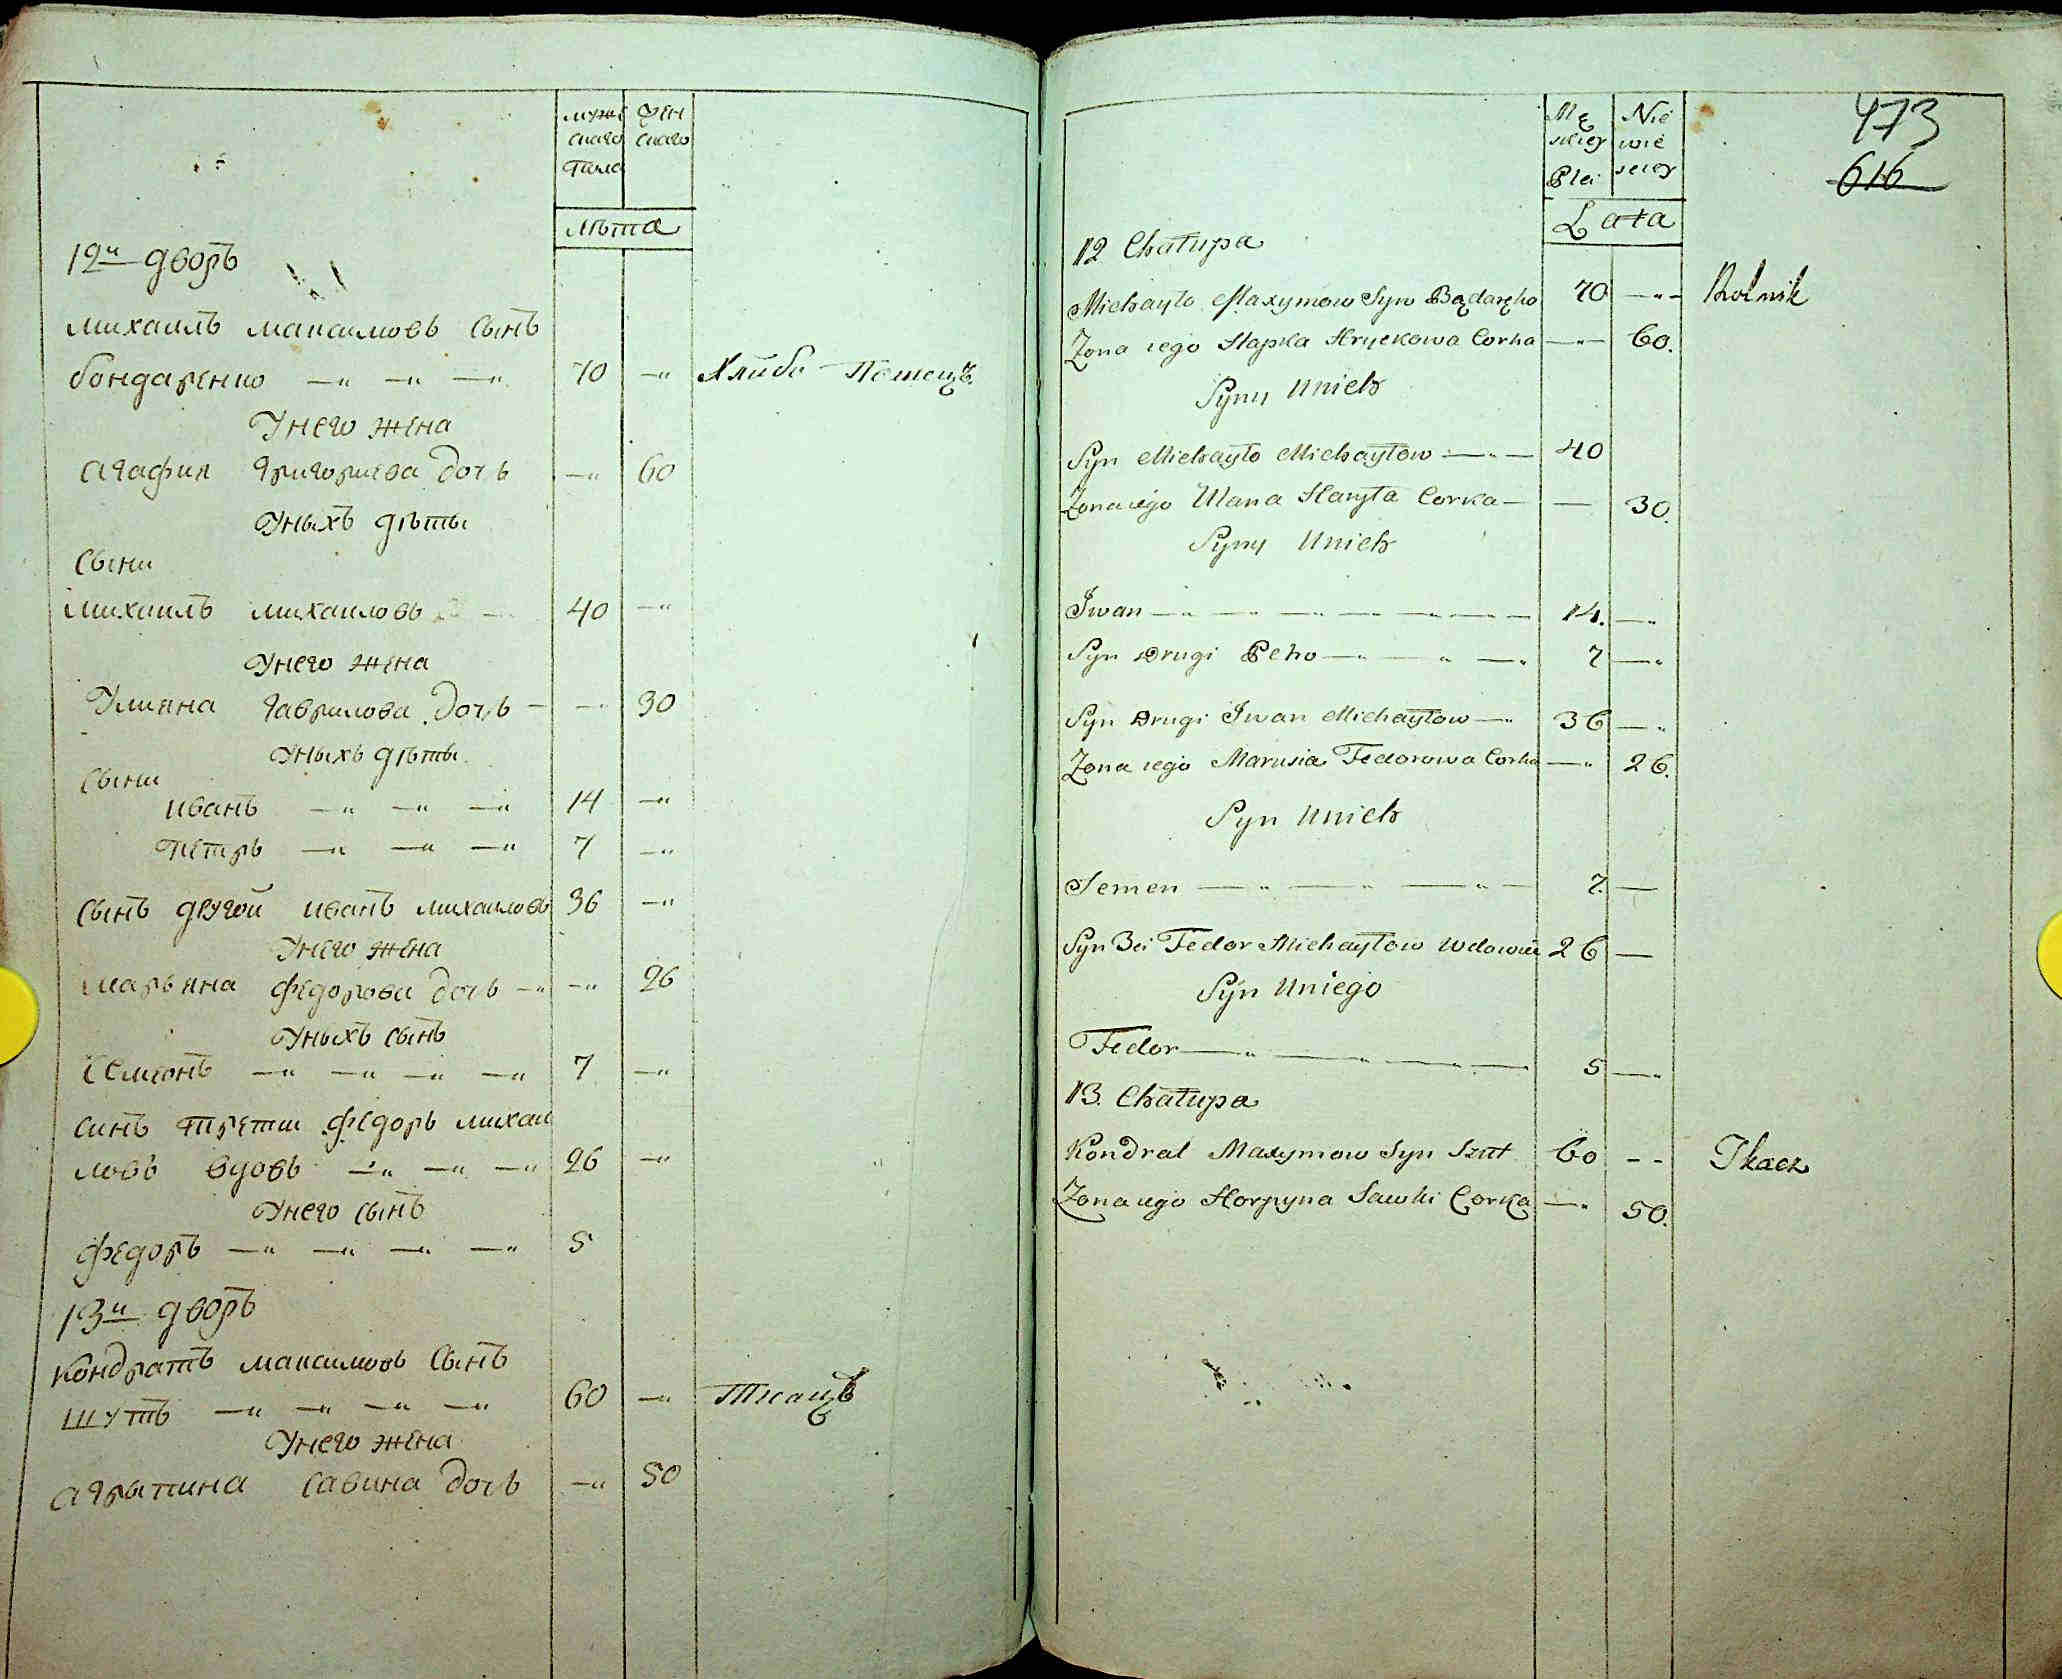 мужескаго пола
женскаго
лѣта
12й дворъ
михаилъ максимовъ сынъ
бондаренко 70
Хлибо-Пашецъ
Унего жена
агафия григориева дочь 60
Уныхъ дѣты
сыны
михаилъ михаиловъ 40
Унего жена
Улияна гаврилова дочь 30
Уныхъ дѣты
сыны
иванъ 14
петръ 7
сынъ другой иванъ михаиловъ 36
Унего жена
марьяна федорова дочь 26
Уныхъ сынъ
семионъ 7
синъ трети федоръ михаи
ловъ вдовъ 26
Унего сынъ
федоръ 5
13й дворъ
кондратъ максимовъ сынъ
шутъ 60
Ткацъ
Унего жена
агрыпина савина дочь 50
473
616
Mę skiey Płci
Nie wie sciey
Lata
12 Chałupa
Michayło Maxymow Syn Bądaręko 70 Rolnik
Zona iego Hapka Hryckowa Corka 60.
Syny Unich
Syn Michayło Michayłow 40
Zona iego Ulana Hawryła Corka 30.
Syny Unich
Iwan 14.
Syn Drugi Petro 7
Syn Drugi Iwan Michayłow 36
Zona iego Marusia Fedorowa Corka 26.
Syn Unich
Semen 7.
Syn 3ci Fedor Michayłow Wdowiec 26
Syn Uniego
Fedor 5
13. Chałupa
Kondrat Maxymow Syn Szut 60 Tkacz
Zona iego Horpyna Sawki Corka 50.